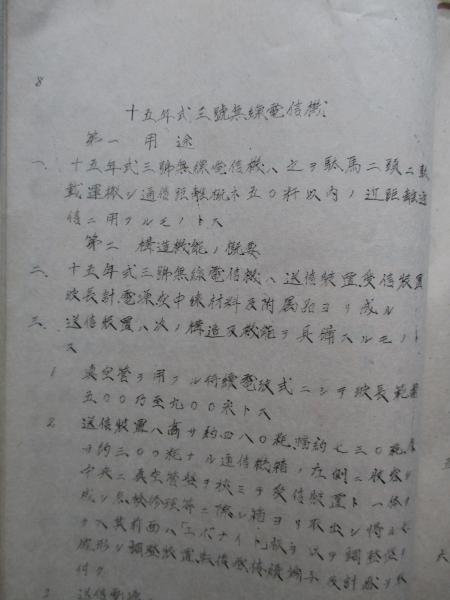 8
十五年式三號無線電信機
第一 用途
一、十五年式三號無線電信機ハ之ヲ駄馬二頭ニ駄
載運搬シ通信距離概ネ五〇粁以内ノ近距離通
信ニ用フルモノトス
第二 構造機能ノ概要
二、十五年式三號無線電信機ハ送信裝置、受信裝置
波長計電源空中線材料及附属品ヨリ成ル
三、送信裝置ハ次ノ構造及機能ヲ具備スルモノト
ス
1 真空管ヲ用フル持續電波式ニシテ波長範圍
五〇〇乃至九〇〇米トス
2 送信裝置ハ高サ約四八〇粍、幅約七三〇粍
約三〇〇粍ナル通信機箱ノ左側ニ収容シ
中央ニ真空管 ヲ挾ミテ受信裝置ト一体ヲ
成シ 等ニ際シ箱ヨリ取出シ得ル
其前面ハ「エボナイト」板ヲ以テ
成形シ調整裝置 接續端子及計器ヲ
付ク
3 送信電源